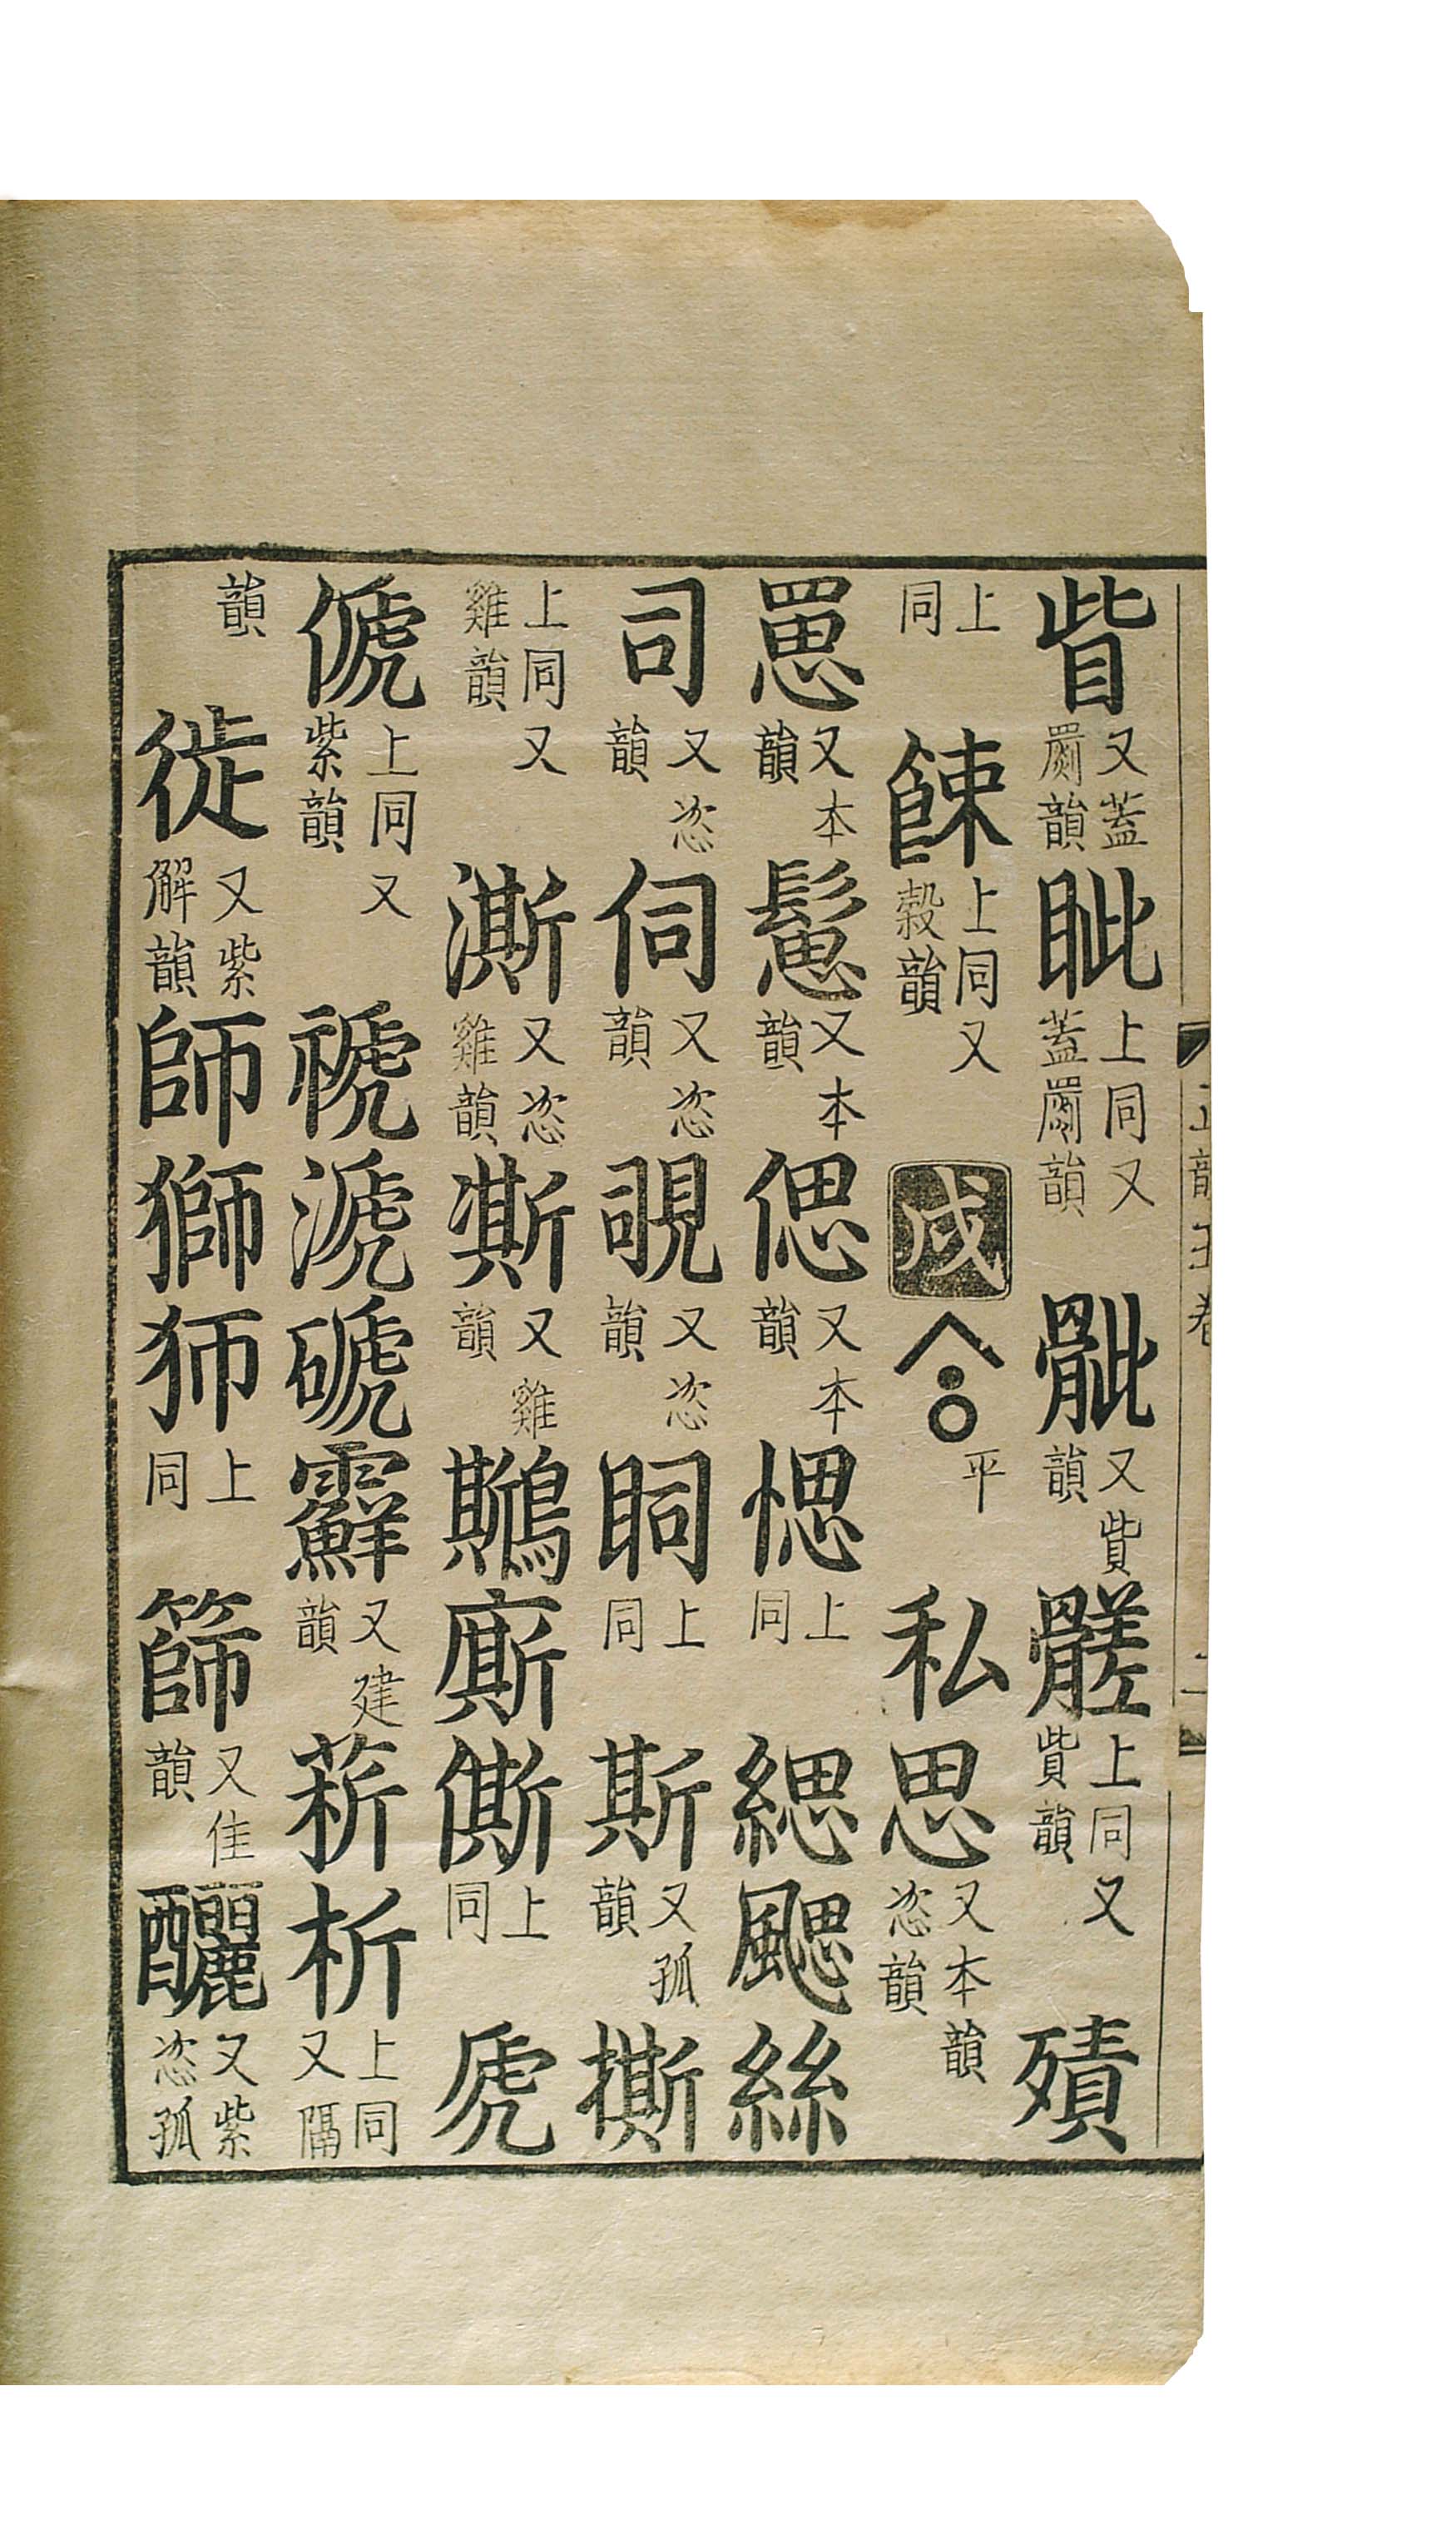 眥又蓋罽韻眦上同又蓋罽韻骴又貲韻髊上同又貲韻殨
上同餗上同又穀韻戍平私思又本恣韻韻
罳又本韻鬆又本韻偲又本韻愢上同緦颸絲
司又恣韻伺又恣韻覗又恣韻眮上同斯又孤韻撕
上同又雞韻澌又恣雞韻凘又雞韻鷉廝僩上同虒
傂上同又紫韻褫㴲磃䨘又建韻菥析上同又隔
韻徙又紫解韻師獅狮上同篩又佳韻釃又紫恣孤